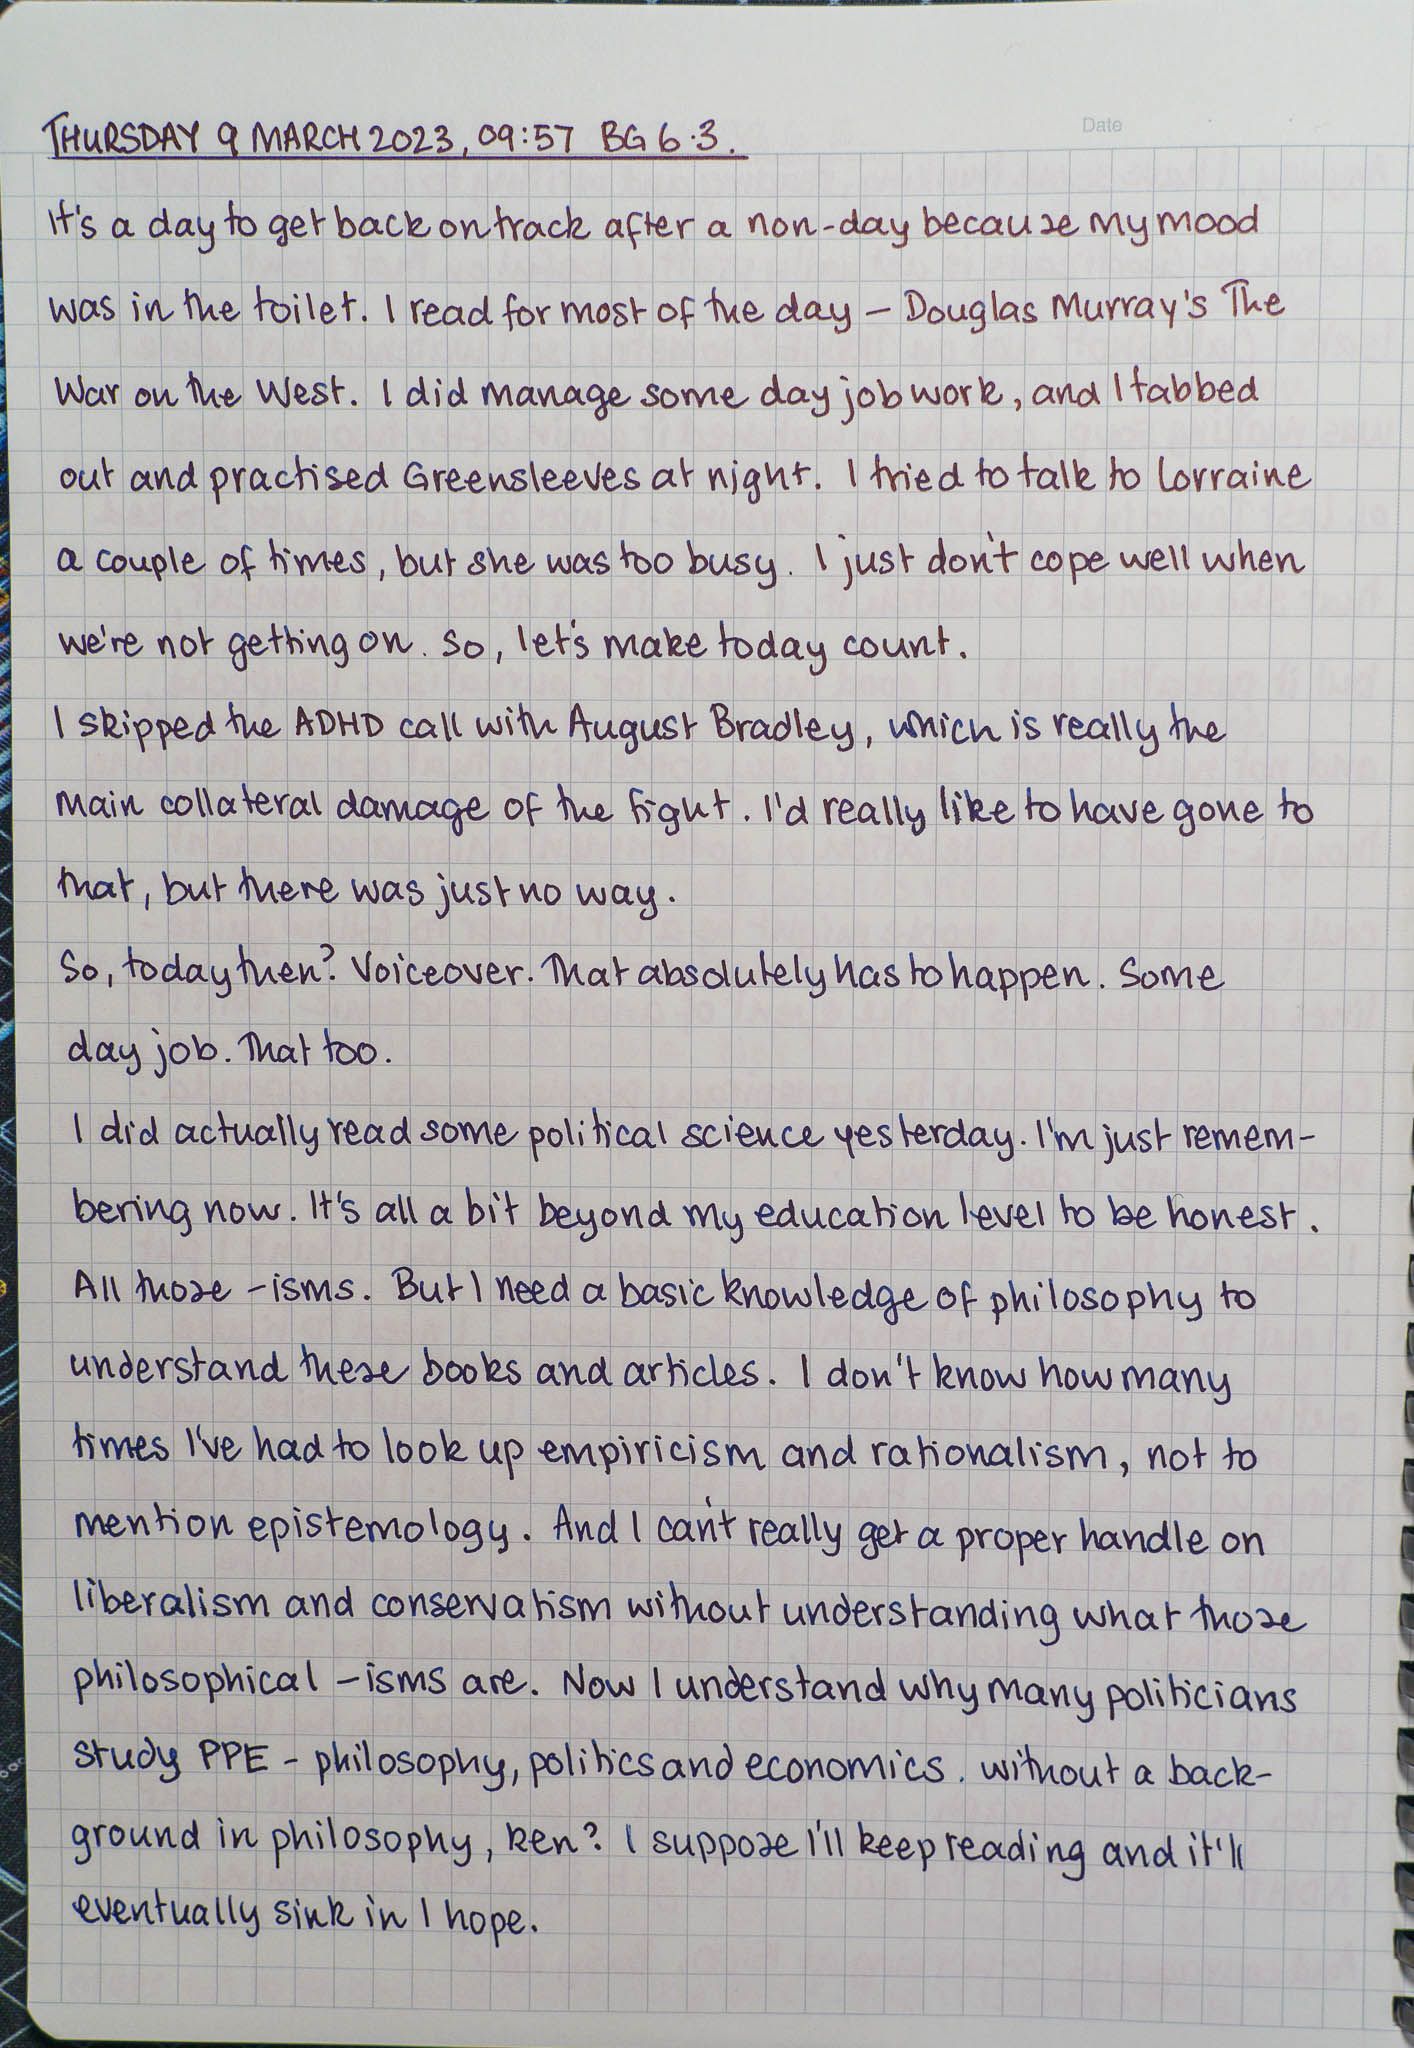 Date
THURSDAY 9 MARCH 2023, 09:57 BG 6.3.
It's a day to get back on track after a non-day because my mood
was in the toilet. I read for most of the day – Douglas Murray's The
War on the West. I did manage some day job work, and I tabbed
out and practised Greensleeves at night. I tried to talk to Lorraine
a couple of times, but she was too busy. I just don't cope well when
we're not getting on. So, let's make today count.
I skipped the ADHD call with August Bradley, which is really the
main collateral damage of the fight. I'd really like to have gone to
that, but there was just no way.
So, today then? Voiceover. That absolutely has to happen. Some
day job. That too.
I did actually read some political science yesterday. I'm just remem-
bering now. It's all a bit beyond my education level to be honest.
All those -isms. But I need a basic knowledge of philosophy to
understand these books and articles. I don't know how many
times I've had to look up empiricism and rationalism, not to
mention epistemology. And I can't really get a proper handle on
liberalism and conservatism without understanding what those
philosophical -isms are. Now I understand why many politicians
study PPE - philosophy, politics and economics. Without a back-
ground in philosophy, ken? I suppose I'll keep reading and it'll
eventually sink in I hope.